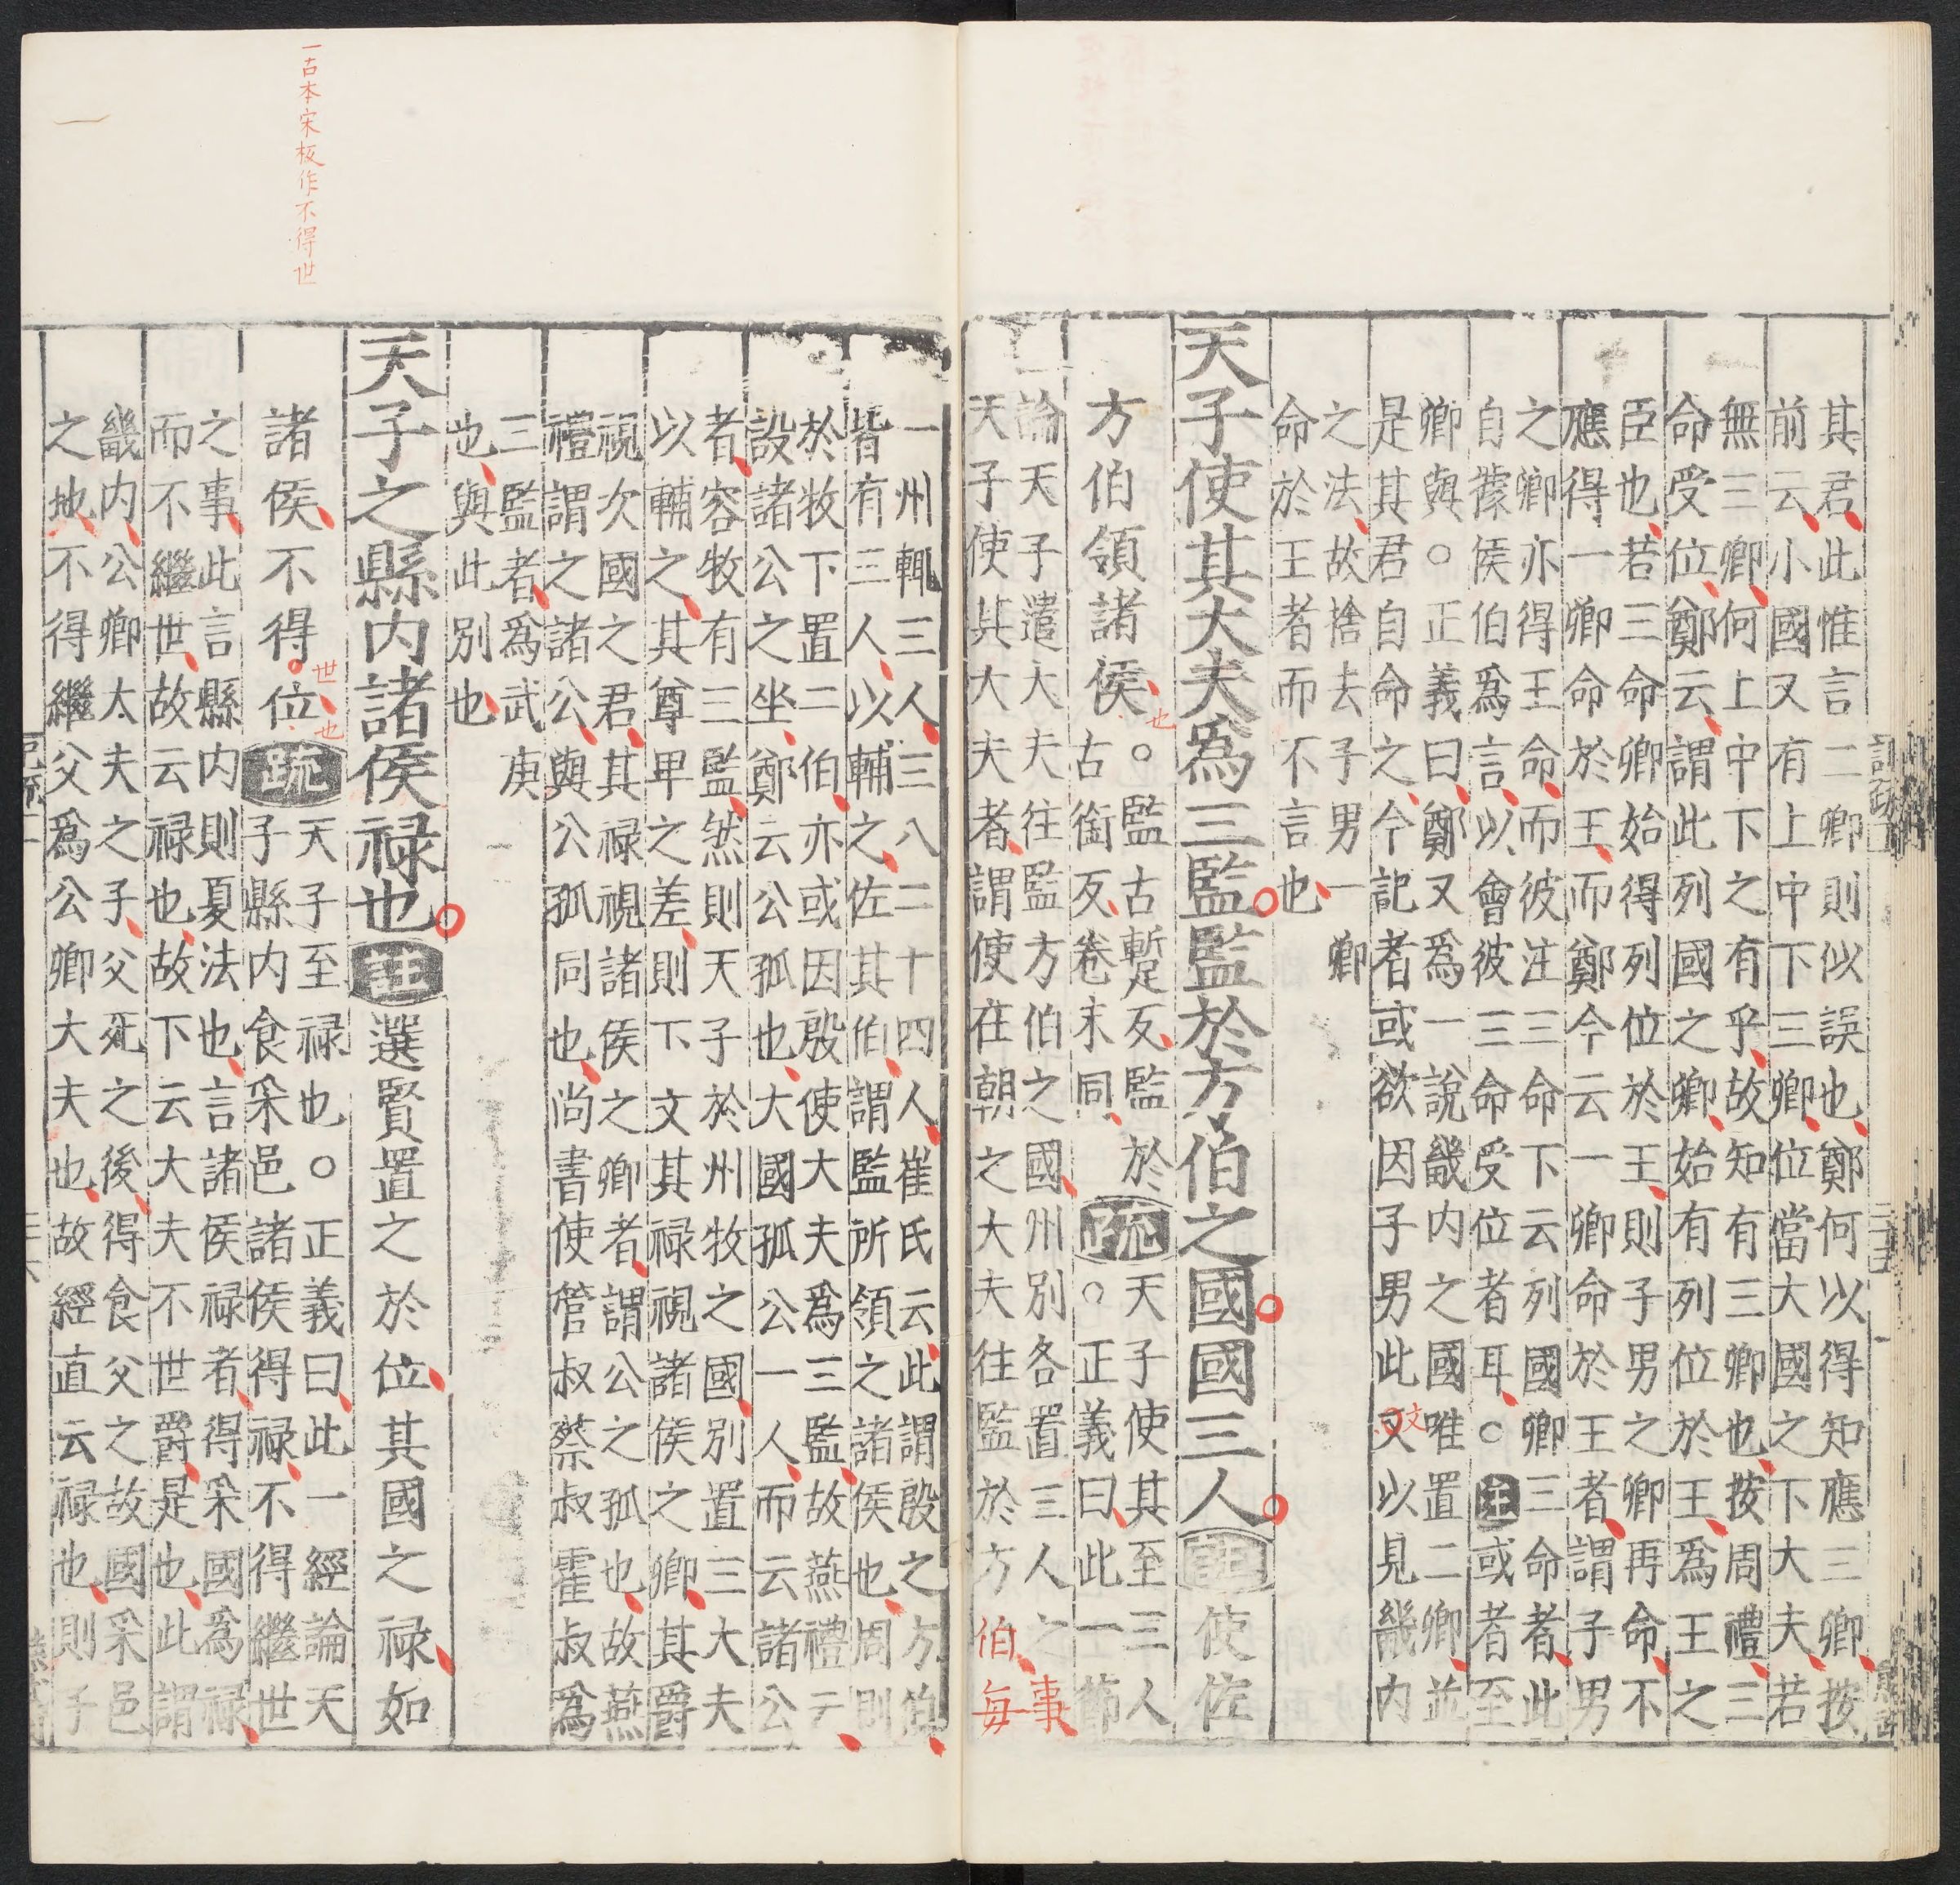 其君此惟言二卿則似誤也鄭何以得知應三卿按
前云小國又有上中下三卿位當大國之下大夫若
無三卿何上中下之有乎故知有三卿也按周禮三
命受位鄭云謂此列國之卿始有列位於王爲王之
臣也若三命卿始得列位於王則子男之卿再命不
應得一卿命於王而鄭今云一卿命於王者謂子男
之卿亦得王命而彼注三命下云列國卿三命者此
自據侯伯爲言以會彼三命受位者耳○注或者至
卿與○正義曰鄭又爲一說畿内之國唯置二卿並
是其君自命之今記者或欲因子男此文以見畿内
之法故捨去子男一卿
命於王者而不言也
天子使其大夫爲三監監於方伯之國國三人注使佐
方伯領諸侯也○監古蹔反監於
古銜反卷末同疏天子使其至三人
○正義曰此一節
論天子遣大夫往監方伯之國州別各置三人之事
天子使其大夫者謂使在朝之大夫往監於方伯每
一州輒三人三八二十四人崔氏云此謂殷之方伯
皆有三人以輔之佐其伯謂監所領之諸侯也周則
於牧下置二伯亦或因殷使大夫爲三監故燕禮云
設諸公之坐鄭云公孤也大國孤公一人而云諸公
者容牧有三監然則天子於州牧之國別置三大夫
以輔之其尊卑之差則下文其禄視諸侯之卿其爵
視次國之君其禄視諸侯之卿者謂公之孤也故燕
禮謂之諸公與公孤同也尚書使管叔蔡叔霍叔爲
三監者爲武庚
也與此別也
天子之縣内諸侯禄也注選賢置之於位其國之禄如
諸侯不得世位也疏天子至禄也○正義曰此一經論天
子縣内食采邑諸侯得禄不得繼世
之事此言縣内則夏法也言諸侯禄者得采國爲禄
而不繼世故云禄也故下云大夫不世爵是也此謂
畿内公卿大夫之子父死之後得食父之故國采邑
之地不得繼父爲公卿大夫也故經直云禄也則子
一古本宋板作不得世